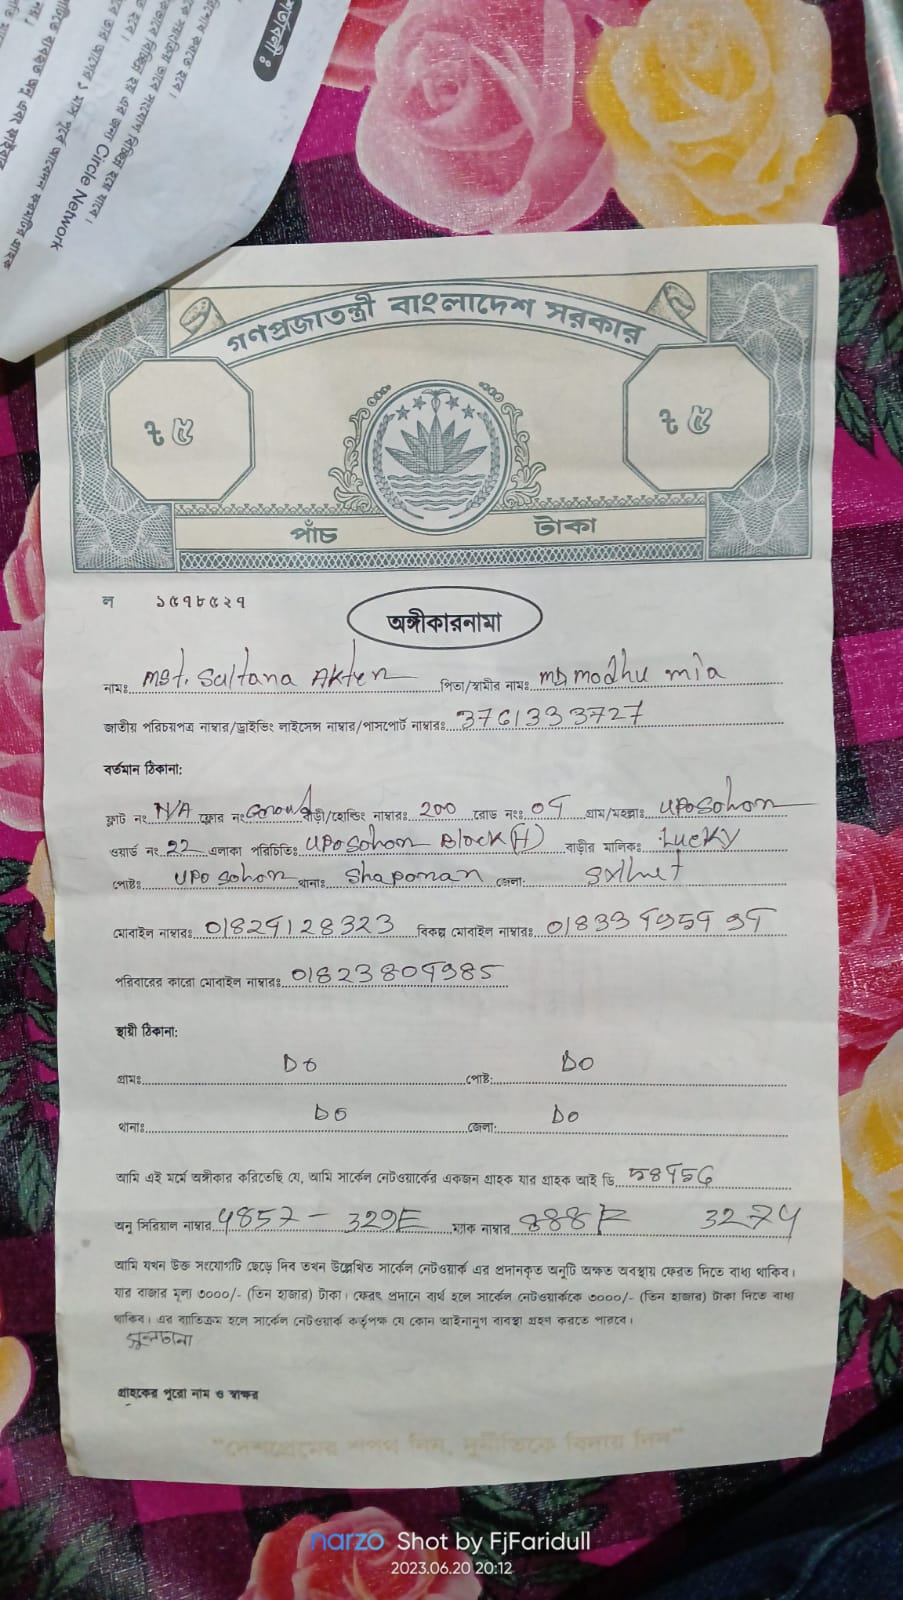 শর্তাবলী ঃ
Circle Network
গণপ্রজাতন্ত্রী বাংলাদেশ সরকার
৳ ৫
৳ ৫
পাঁচ টাকা
ল ১৫৭৮৫২৭
অঙ্গীকারনামা
নামঃ Mst. Sultana Akter পিতা/স্বামীর নামঃ MD modhu mia
জাতীয় পরিচয়পত্র নাম্বার/ড্রাইভিং লাইসেন্স নাম্বার/পাসপোর্ট নাম্বারঃ 3761333727
বর্তমান ঠিকানা:
ফ্লাট নং N/A ফ্লোর নং Ground বাড়ী/হোল্ডিং নাম্বারঃ 200 রোড নংঃ 09 গ্রাম/মহল্লাঃ UPoSohon
ওয়ার্ড নং 22 এলাকা পরিচিতিঃ UPoSohon Block (H) বাড়ীর মালিকঃ Lucky
পোষ্টঃ UPo Sohon থানাঃ Shaporan জেলা: Sylhet
মোবাইল নাম্বারঃ 01829128323 বিকল্প মোবাইল নাম্বারঃ
পরিবারের কারো মোবাইল নাম্বারঃ 01823809985
স্থায়ী ঠিকানা:
গ্রামঃ Do পোষ্ট: Do
থানাঃ Do জেলা: Do
আমি এই মর্মে অঙ্গীকার করিতেছি যে, আমি সার্কেল নেটওয়ার্কের একজন গ্রাহক যার গ্রাহক আই ডি
অনু সিরিয়াল নাম্বার 4857 - 329E ম্যাক নাম্বার 3274
আমি যখন উক্ত সংযোগটি ছেড়ে দিব তখন উল্লেখিত সার্কেল নেটওয়ার্ক এর প্রদানকৃত অনুটি অক্ষত অবস্থায় ফেরত দিতে বাধ্য থাকিব।
যার বাজার মূল্য ৩০০০/- (তিন হাজার) টাকা। ফেরৎ প্রদানে ব্যর্থ হলে সার্কেল নেটওয়ার্ককে ৩০০০/- (তিন হাজার) টাকা দিতে বাধ্য
থাকিব। এর ব্যতিক্রম হলে সার্কেল নেটওয়ার্ক কর্তৃপক্ষ যে কোন আইনানুগ ব্যবস্থা গ্রহণ করতে পারবে।
সুলতানা
গ্রাহকের পুরো নাম ও স্বাক্ষর
"দেশপ্রেমের শপথ নিন, দুর্নীতিকে বিদায় দিন"
narzo Shot by FjFaridull
2023.06.20 20:12